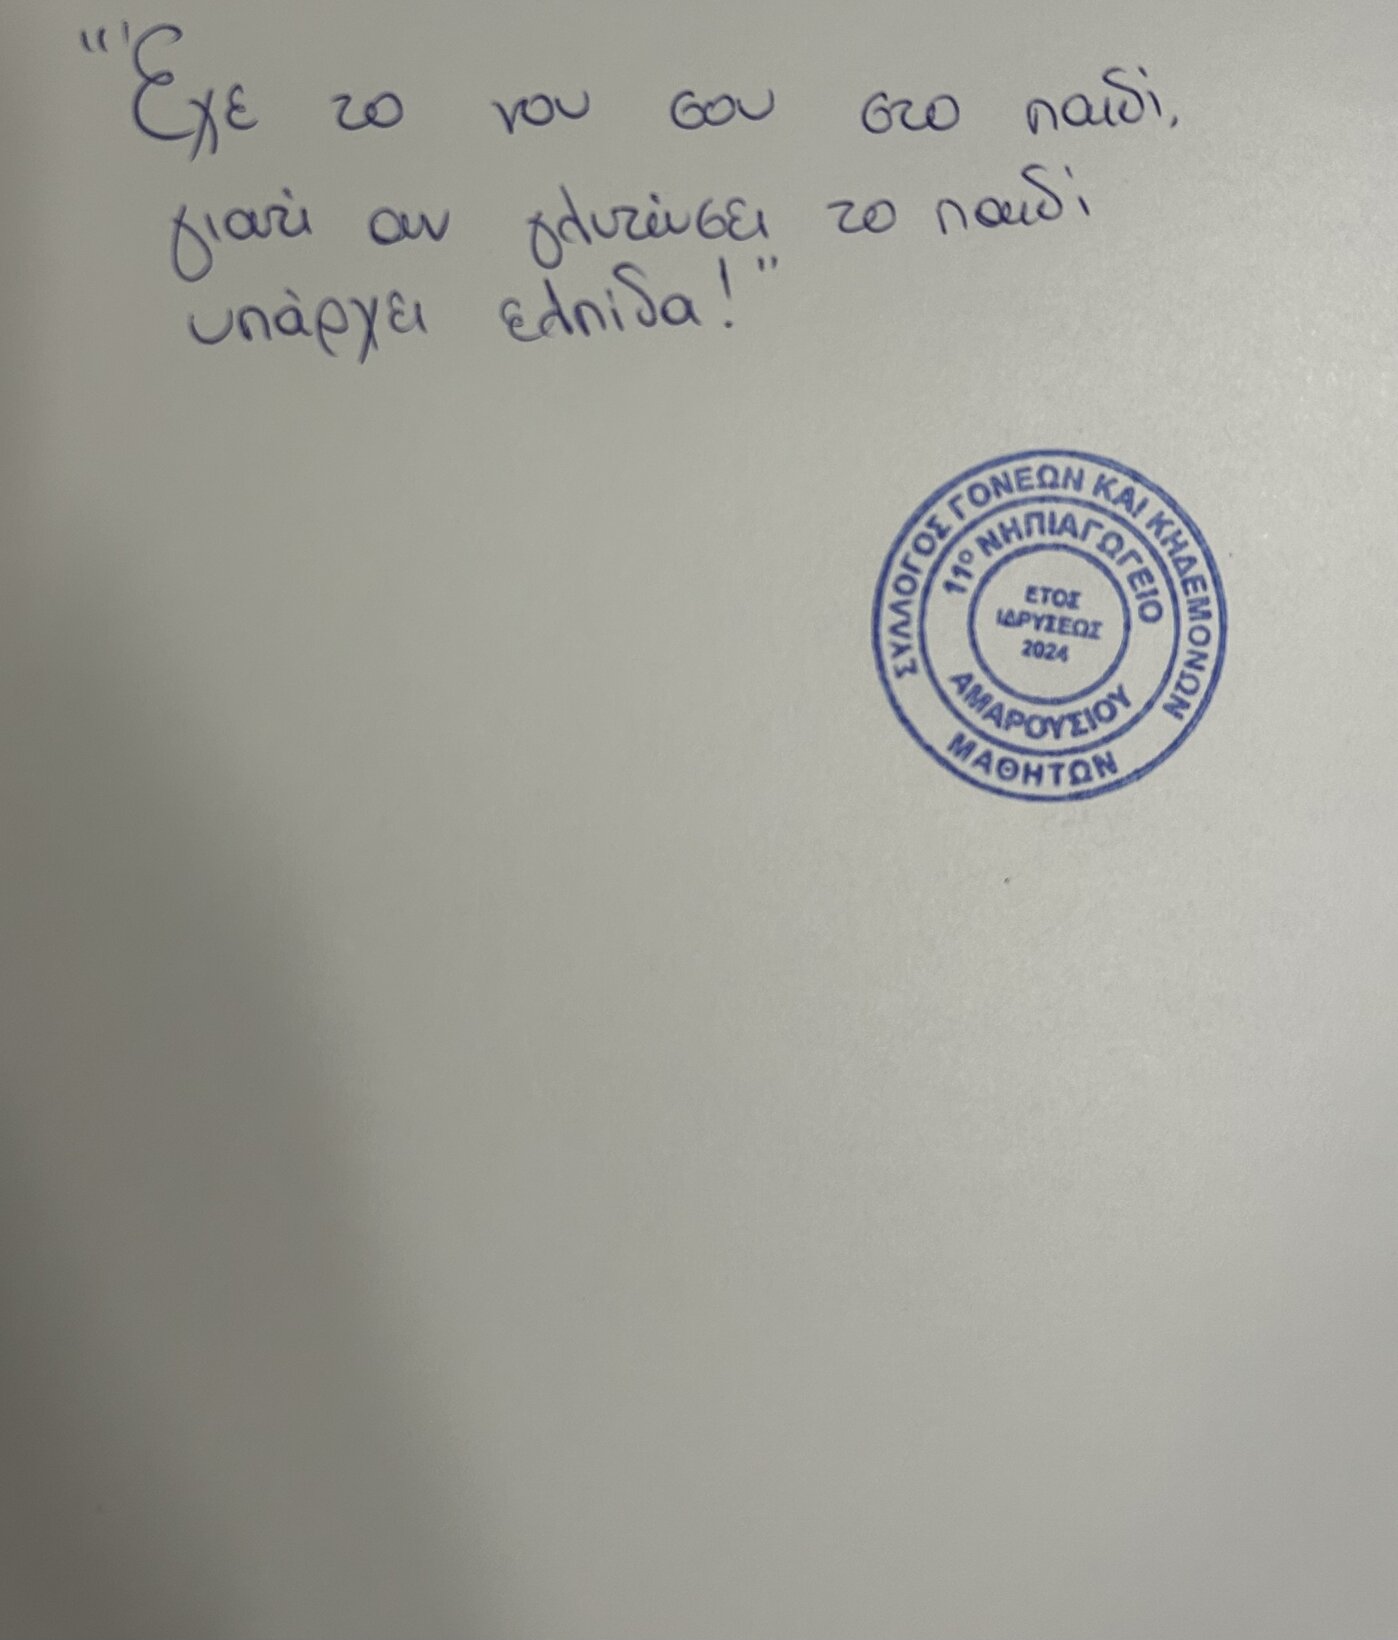 "Έχε το νου σου στο παιδί,
γιατί αν γλυτώσει το παιδί
υπάρχει ελπίδα!"
ΣΥΛΛΟΓΟΣ ΓΟΝΕΩΝ ΚΑΙ ΚΗΔΕΜΟΝΩΝ
ΜΑΘΗΤΩΝ
11ο ΝΗΠΙΑΓΩΓΕΙΟ
ΑΜΑΡΟΥΣΙΟΥ
ΕΤΟΣ
ΙΔΡΥΣΕΩΣ
2024